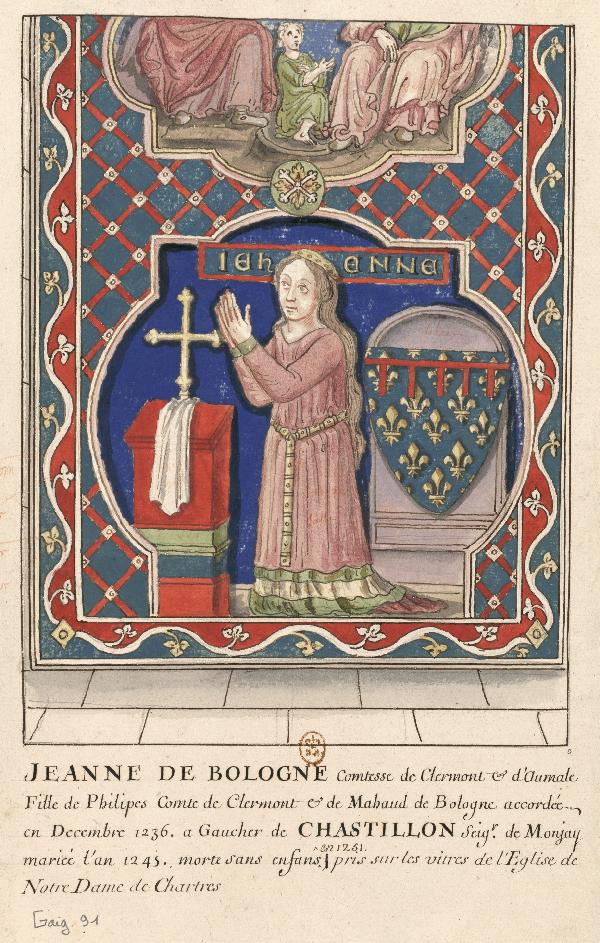 IEH ENNE
JEANNE DE BOLOGNE Comtesse de Clermont & d'Aumale
Fille de Philipes Comte de Clermont & de Mahaud de Bologne accordée
en Decembre 1236. a Gaucher de CHASTILLON Seigr. de Monjay
mariée l'an 1245. morte sans enfans en 1251. pris sur les vitres de l'Eglise de
Notre Dame de Chartres
Gaig. 91